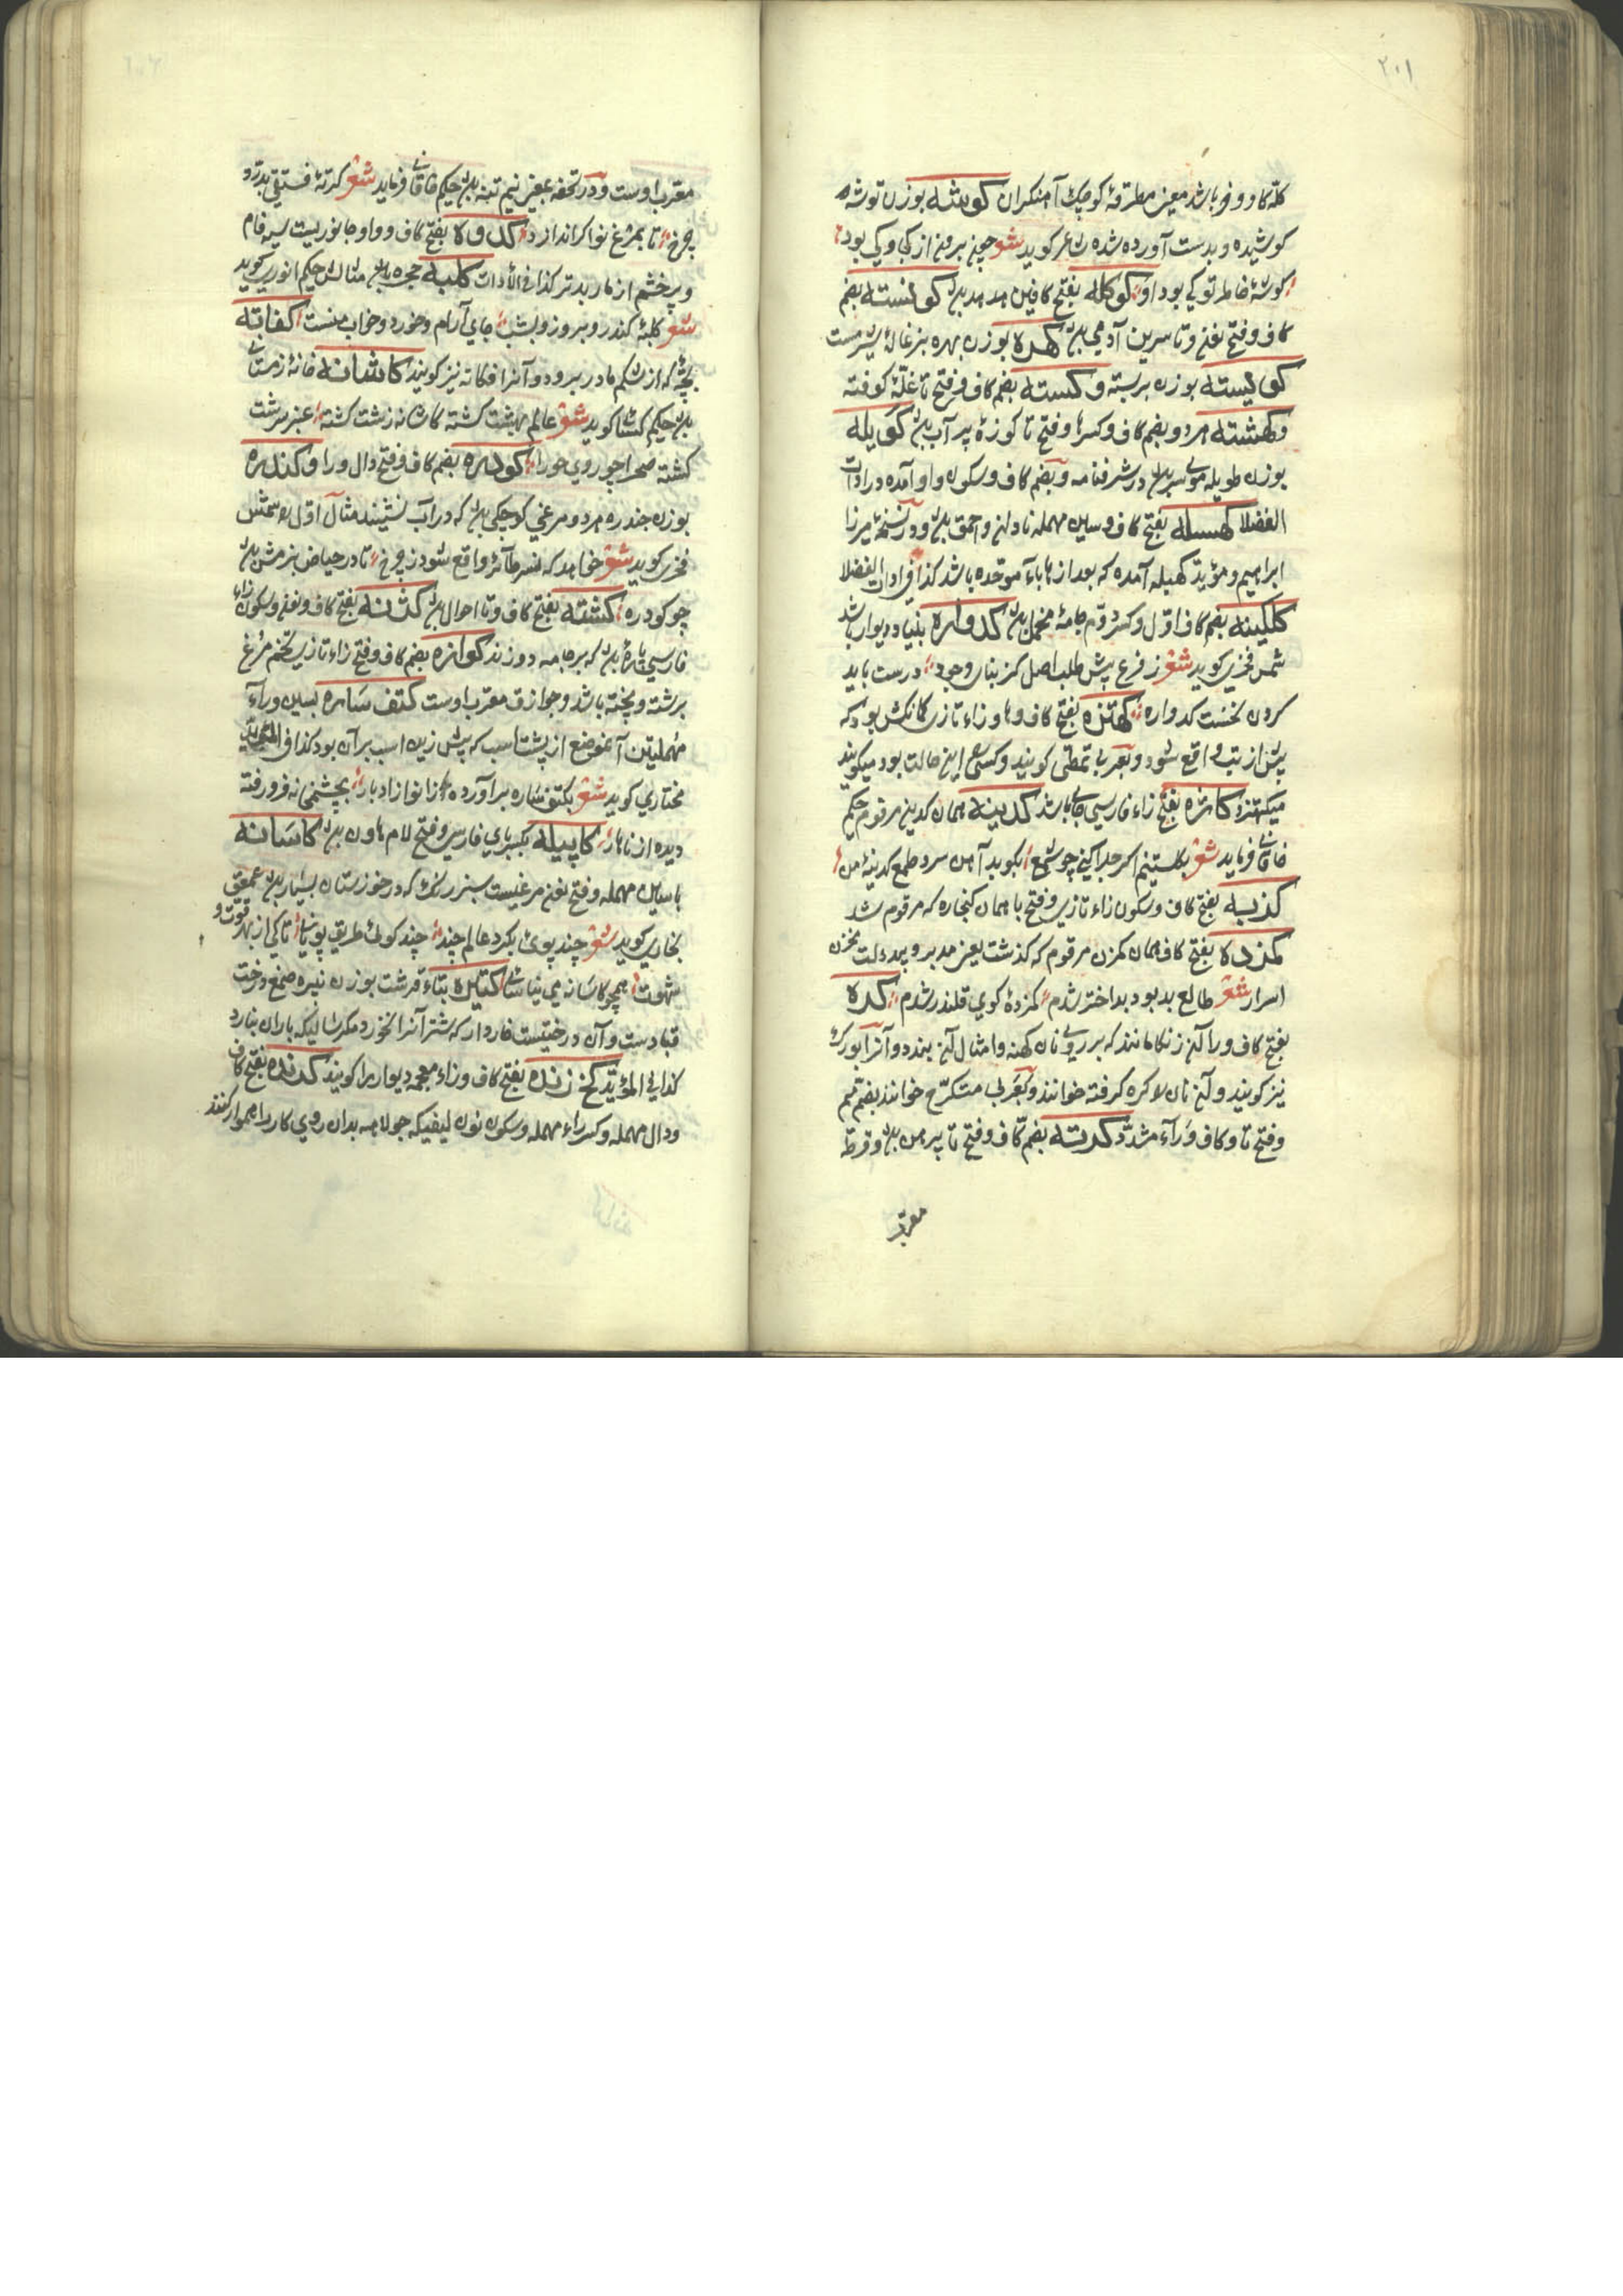 ۲۰۱
کله کاو و خر باشد معنی مطرقهٔ کوچک آهنکران کوشه بوزن توشه
کوشیده و بدست آورده شده شاعر کوید شعر چون برون از کجا و کی بود
کوشهٔ خاطر تو کی بود او کوکله بفتح کافین هدهد
کاف و فتح نون و تا سرین آدمی کهره بوزن بهره بزغالهٔ شیرمست
کوالیسته بوزن بر بسته و کسته بضم کاف و فتح تا غلّهٔ کوفته
و کهشته هر دو بضم کاف و کسر ها و فتح تا کوزهٔ پر آب کویله
بوزن طویله موی سر در شرفنامه و بضم کاف و سکون واو آمده در ادات
الفضلا کهسله بفتح کاف و سین مهمله نادان و احمق و در نسخهٔ میرزا
ابراهیم و مؤید کهبله آمده که بعد از ها باء موحّده باشد کذا فی ادات الفضلا
کلکینه بضم کاف اوّل و کسر دوّم جامهٔ مخمل کدواره بنیاد دیوار باشد
شمس فخری کوید شعر ز فرع پیش طلب اصل کز بنای وجود درست باید
کردن نخست کدواره کهنزه بفتح کاف و ها و زاء تازی کمانکش بود که
پیش از تب واقع شود و بعربی تمطّی کویند و کسی را این حالت بود میکویند
میکهنزد کاژه بفتح زاء فارسی جای باشد کدینه همان کدین مرقوم حکیم
خاقانی فرماید شعر بکلستنیم اکر جلد کنی چو شمع بکوبد آهن سرد طمع کدینهٔ من
کزبه بفتح کاف و سکون زاء تازی و فتح با همان کنجاره که مرقوم شد
کمزده بفتح کاف همان کمزن مرقوم که کذشت یعنی مدبر و بیدولت مخزن
اسرار شعر طالع بد بود بد اختر شدم کمزدهٔ کوی قلندر شدم کره
بفتح کاف و را آن زنکار مانند که بر روی نان کهنه و امثال آن بندد و آنرا بورک
نیز کویند و آن نان را کره کرفته خوانند و بعربی متکرّج خوانند بضم میم
و فتح تا و کاف و راء مشدّد کرته بضم کاف و فتح تا پیرهن و قرطه
معرب
معرب اوست و در تحفه بمعنی نیم تنه حکیم خاقانی فرماید شعر کرتهٔ فستقی بدرد
چرخ تا بمرغ نواکر اندازد کدوله بفتح کاف و واو جانوریست سیه فام
و پر خشم از مار بدتر کذا فی الأدات کلبه حجره مثالش حکیم انوری کوید
شعر کلبهٔ کندرو بروز و بشب جای آرام و خورد و خواب منست کفانه
بچهٔ که از شکم مادر برود و آنرا افکانه نیز کویند کاشانه خانهٔ زمستانی
حکیم کسائی کوید شعر عالم بهشت کشته کاشانه زشت کشته عنبر سرشت
کشته صحرا چو روی حورا کودره بضم کاف و فتح دال و را و کندره
بوزن جندره هر دو مرغی کوچکی که در آب نشیند مثال اوّل شمس
فخری کوید شعر خواهد که نسر طائر واقع شود ز چرخ تا در حیاض بزمش
چو کودره کشته بفتح کاف و تا احوال کژنه بفتح کاف و نون و سکون زاء
فارسی پارهٔ که بر جامه دوزند کوازه بضم کاف و فتح زاء تازی تخم مرغ
برشته و پخته باشد و جوازق معرب اوست کتف ساره بسین و راء
مهملتین آن موضع از پشت اسب که پیش زین اسب بر آن بود کذا فی المؤید
مختاری کوید شعر بکتف ساره بر آورده زانوا ز ادبار بچشمخانه فرو رفته
دیده از ناهار کاپیله بکسر بای فارسی و فتح لام هاون کاسانه
با سین مهمله و فتح نون مرغیست سبز رنک که در خوزستان بسیار عمعق
بخاری کوید شعر چند پوئی بکرد عالم چند چند کوئی طریق پویانی تا کی از بهر قوت و
شهوت همچو کاسانه می نیاسائی کتیره بتاء قرشت بوزن نبیره صمغ درخت
قتادست و آن درختیست خاردار که شتر آنرا نخورد مکر سالی که باران نبارد
کذا فی المؤید کخ زنده بفتح کاف و زاء معجمه دیوار را کویند کرنده بفتح کاف
و دال مهمله و کسر راء مهمله و سکون نون لیفی که جولاهه بدان روی کار را هموار کنند